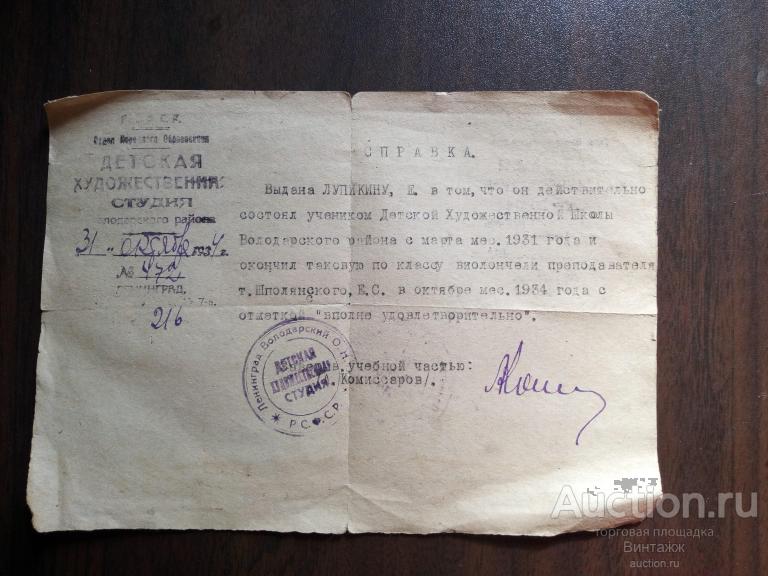 Р.С.Ф.С.Р.
Отдел Народного Образования
ДЕТСКАЯ
ХУДОЖЕСТВЕННАЯ
СТУДИЯ
Володарского района
31 " октября 1934 г.
№ 472
ЛЕНИНГРАД,
216
СПРАВКА.
Выдана ЛУПИКИНУ, Е. в том, что он действительно
состоял учеником Детской Художественной Школы
Володарского района с марта мес. 1931 года и
окончил таковую по классу виолончели преподавателя
т. Шполянского, Е.С. в октябре мес. 1934 года с
отметкой "вполне удовлетворительно".
учебной частью:
Комиссаров/.
Ленинград Володарский О.Н.
ДЕТСКАЯ
ХУДОЖЕСТВЕННАЯ
СТУДИЯ
Р.С.Ф.С.Р.
Auction.ru
торговая площадка
Винтажк
auction.ru